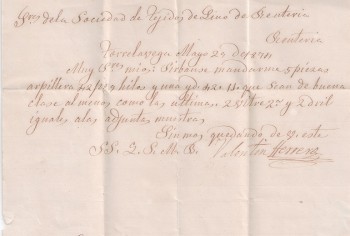 Sres de la Sociedad de Tejidos de Lino de Renteria
Renteria
Torrelavega Mayo 29 de 1871
Muy Sres mios: Sirbanse mandarme 5 piezas
arpillera hilos y una yd que sean de buena
clase al menos como las ultimas. 2 y 2 dril
iguales alas adjuntas muestras
Sin mas quedando de V. este
S.S. Q. S. M. B. Valentin Herrera